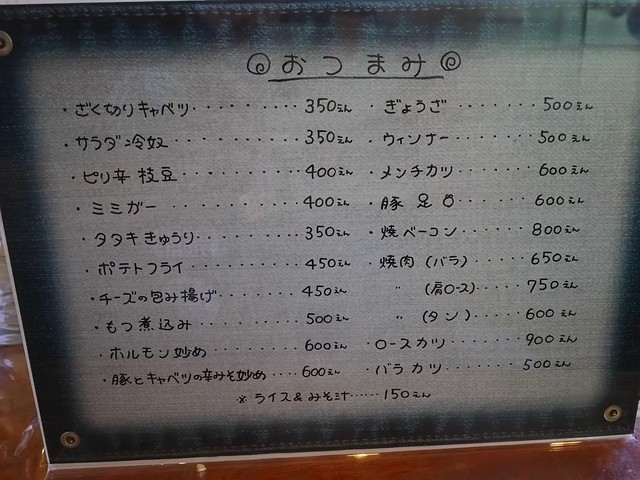 おつまみ
・ざく切りキャベツ・・・・・・・・・350えん
・サラダ冷奴・・・・・・・・・・350えん
・ピリ辛 枝豆・・・・・・・・・400えん
・ミミガー・・・・・・・・・・400えん
・タタキきゅうり・・・・・・・・350えん
・ポテトフライ・・・・・・・・・450えん
・チーズの包み揚げ・・・・・・・450えん
・もつ煮込み・・・・・・・・500えん
・ホルモン炒め・・・・・・・600えん
・豚とキャベツの辛みそ炒め・・・・600えん
・ぎょうざ・・・・・・・500えん
・ウィンナー・・・・・・・500えん
・メンチカツ・・・・・・・600えん
・豚足・・・・・・・600えん
・焼ベーコン・・・・・・・800えん
・焼肉(バラ)・・・・・650えん
〃(肩ロース)・・・・・750えん
〃(タン)・・・・・600えん
・ロースカツ・・・・・・・900えん
・バラカツ・・・・・・・500えん
※ライス&みそ汁・・・・・150えん